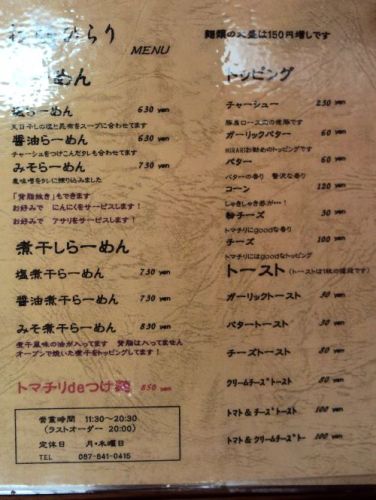 MENU
麺類の大盛は150円増しです
塩らーめん 630 yen
天日干しの塩と昆布をスープに合わせてます
醤油らーめん 630 yen
チャーシュをつけこんだタレも合わせてます
みそらーめん 730 yen
「背脂抜き」もできます
お好みで にんにくをサービスします!
お好みで アサリをサービスします!
煮干しらーめん
塩煮干らーめん 730 yen
醤油煮干らーめん 730 yen
みそ煮干らーめん 830 yen
煮干風味の油が入ってます 背脂は入ってません
オーブンで焼いた煮干をトッピングしてます!
トマチリdeつけ麺 850 yen
営業時間 11:30~20:30
(ラストオーダー 20:00)
定休日 月・木曜日
TEL 087-841-0415
トッピング
チャーシュー 230 yen
豚肩ロース肉の焼豚です
ガーリックバター 60 yen
HIRARIお勧めのトッピングです
バター 60 yen
バターの香り 贅沢な香り
コーン 120 yen
しゃきしゃき感が…!
粉チーズ 30 yen
トマチリにgoodな香り
チーズ 100 yen
トマチリにはgoodなトッピング
トースト (トーストは1枚の値段です)
ガーリックトースト 50 yen
バタートースト 50 yen
チーズトースト 80 yen
クリームチーズトースト 80 yen
トマト&チーズトースト 100 yen
トマト&クリームチーズトー 100 yen